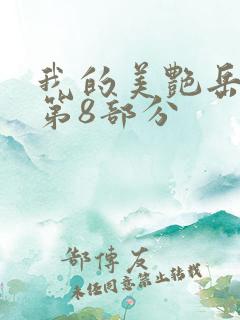 我的美艷岳
第8部分
友
未经同意禁止转载